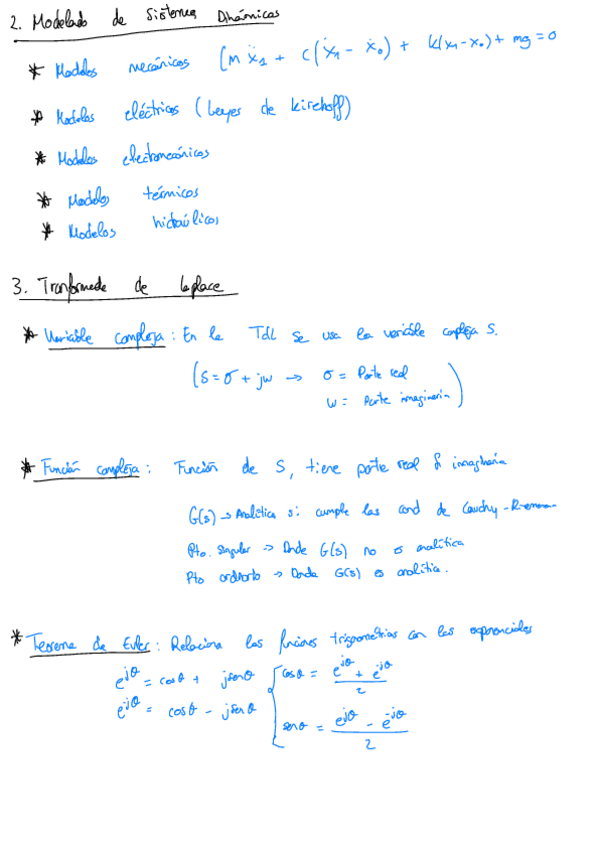 2. Modelado de Sistemas Dinámicos
* Modelos mecánicos (m ẍ₁ + c(ẋ₁ - ẋ₀) + k(x₁-x₀) + mg = 0
* Modelos eléctricos (Leyes de Kirchoff)
* Modelos electromecánicos
* Modelos térmicos
* Modelos hidraúlicos
3. Tranformada de laplace
* Variable compleja: En la TdL se usa la variable compleja S.
(S = σ + jw → σ = Parte real
w = Parte imaginaria)
* Función compleja: Función de S, tiene parte real & imaginaria
G(s) → Analítica si cumple las cond de Cauchy-Riemann
Pto. singular → Donde G(s) no es analítica
Pto ordinario → Donde G(s) es analítica.
* Teorema de Euler: Relaciona las funciones trigonométricas con las exponenciales
e^jθ = cosθ + jsenθ { cosθ = (e^jθ + e^-jθ)/2
e^-jθ = cosθ - jsenθ
senθ = (e^jθ - e^-jθ)/2